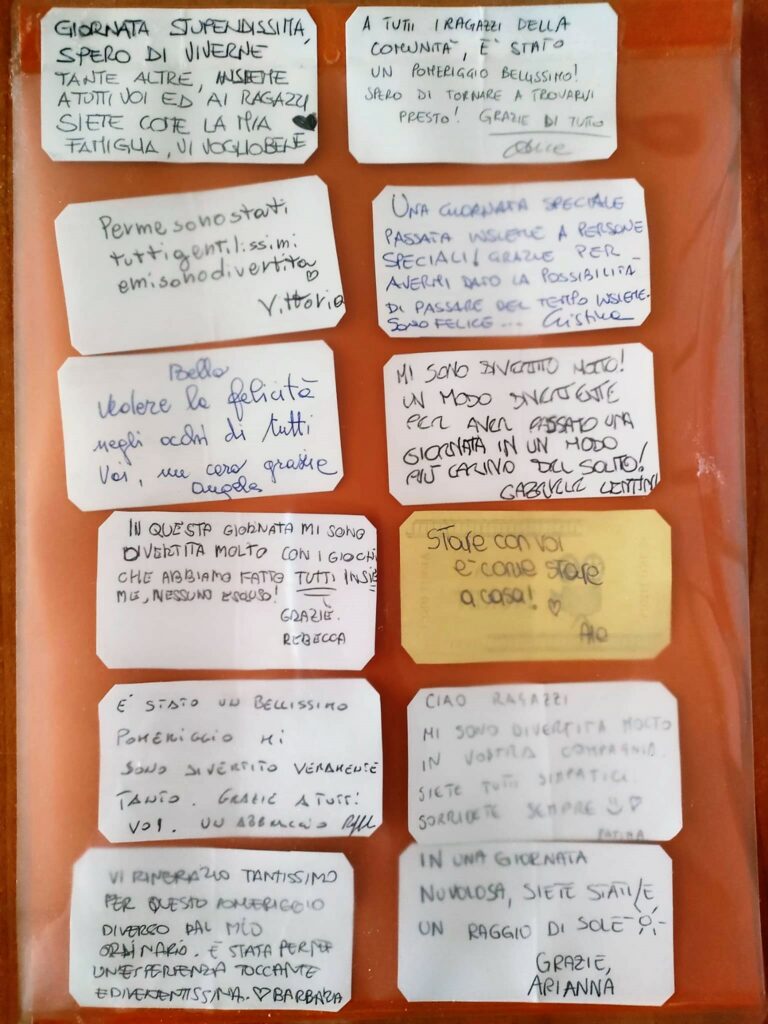 GIORNATA STUPENDISSIMA,
SPERO DI VIVERNE
TANTE ALTRE, INSIEME
A TUTTI VOI ED AI RAGAZZI
SIETE COME LA MIA
FAMIGLIA, VI VOGLIO BENE
A TUTTI I RAGAZZI DELLA
COMUNITÀ, È STATO
UN POMERIGGIO BELLISSIMO!
SPERO DI TORNARE A TROVARVI
PRESTO! GRAZIE DI TUTTO
Per me sono stati
tutti gentilissimi
e mi sono divertita
Vittoria
UNA GIORNATA SPECIALE
PASSATA INSIEME A PERSONE
SPECIALI! GRAZIE PER
AVERMI DATO LA POSSIBILITÀ
DI PASSARE DEL TEMPO INSIEME.
SONO FELICE... Cristina
Bello
vedere la felicità
negli occhi di tutti
voi, un caro grazie
Angela
MI SONO DIVERTITO MOLTO!
UN MODO DIVERTENTE
PER AVER PASSATO UNA
GIORNATA IN UN MODO
PIÙ CARINO DEL SOLITO!
GABRIELE LENTINI
IN QUESTA GIORNATA MI SONO
DIVERTITA MOLTO CON I GIOCHI
CHE ABBIAMO FATTO TUTTI INSIE
ME, NESSUNO ESCLUSO!
GRAZIE.
REBECCA
Stare con voi
è come stare
a casa!
Ale
È STATO UN BELLISSIMO
POMERIGGIO MI
SONO DIVERTITO VERAMENTE
TANTO. GRAZIE A TUTTI
VOI. UN ABBRACCIO
CIAO RAGAZZI
MI SONO DIVERTITA MOLTO
IN VOSTRA COMPAGNIA.
SIETE TUTTI SIMPATICI.
SORRIDETE SEMPRE
VI RINGRAZIO TANTISSIMO
PER QUESTO POMERIGGIO
DIVERSO DAL MIO
ORDINARIO. È STATA PER ME
UN'ESPERIENZA TOCCANTE
E DIVERTENTISSIMA. BARBARA
IN UNA GIORNATA
NUVOLOSA, SIETE STATI/E
UN RAGGIO DI SOLE
GRAZIE,
ARIANNA